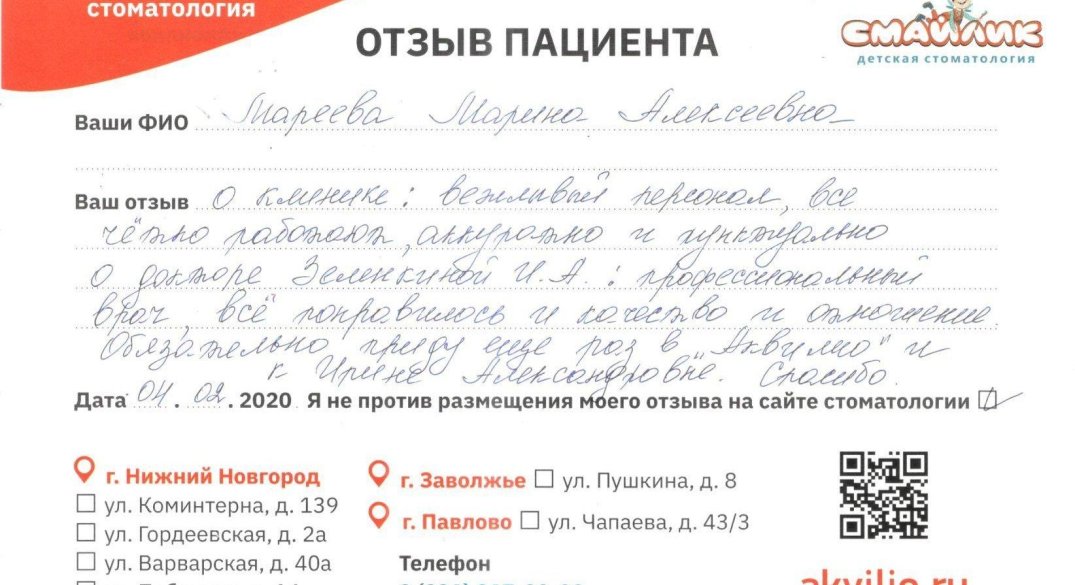 стоматология
СМАЙЛИК
детская стоматология
ОТЗЫВ ПАЦИЕНТА
Ваши ФИО Мареева Марина Алексеевна
Ваш отзыв О клинике: вежливый персонал, все
чётко работают, аккуратно и пунктуально
о докторе Зеленкиной И.А.: профессиональный
врач, всё понравилось и качество и отношение.
Обязательно приду еще раз в "Аквилио" и
к Ирине Александровне. Спасибо.
Дата 04.02.2020 Я не против размещения моего отзыва на сайте стоматологии
г. Нижний Новгород
ул. Коминтерна, д. 139
ул. Гордеевская, д. 2а
ул. Варварская, д. 40а
г. Заволжье ул. Пушкина, д. 8
г. Павлово ул. Чапаева, д. 43/3
Телефон
akvilio.ru